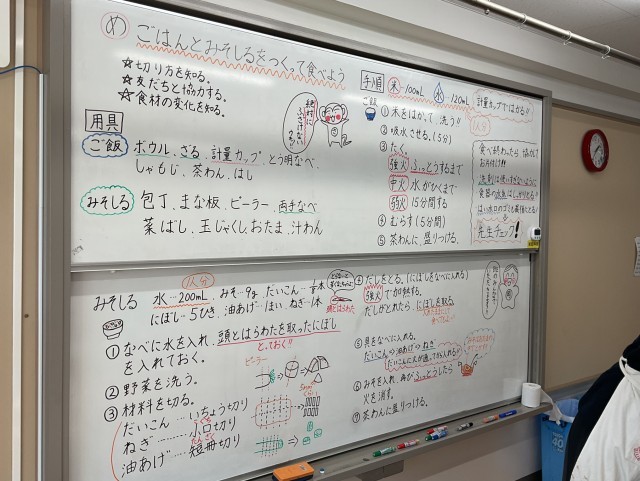 め ごはんとみそしるをつくって食べよう
☆切り方を知る。
☆友だちと協力する。
☆食材の変化を知る。
絶対にふざけない!!
用具
ご飯
ボウル、ざる、計量カップ、とう明なべ、
しゃもじ、茶わん、はし
みそしる
包丁、まな板、ピーラー、両手なべ
菜ばし、玉じゃくし、おたま、汁わん
手順
米…100mL 水…120mL
計量カップではかる!!
1人分
ご飯
①米をはかって洗う!!
②吸水させる。(5分)
③たく。
強火 ふっとうするまで
中火 水がひくまで
弱火 15分間する
④むらす(5分間)
⑤茶わんに盛りつける。
食べ終わったら、協力して
お片付け!!
先生チェック!
1人分
みそしる 水…200mL みそ…9g だいこん
にぼし…5ひき、油あげ…1まい、ねぎ
①なべに水を入れ、頭とはらわたを取ったにぼし
を入れておく。
とっておく!!
②野菜を洗う。
③材料を切る。
だいこん…いちょう切り
ねぎ………小口切り
油あげ…短冊切り
ピーラー
5mm
頭とはらわた
④だしをとる。(にぼしをなべに入れる)
強火で加熱する。
だしがとれたら、にぼしを取る。
⑤具をなべに入れる。
だいこん⇒油あげ⇒ねぎ
だいこんに火が通ってから入れる!!
⑥みそを入れ、再びふっとうしたら
火を消す。
⑦茶わんに盛りつける。
40